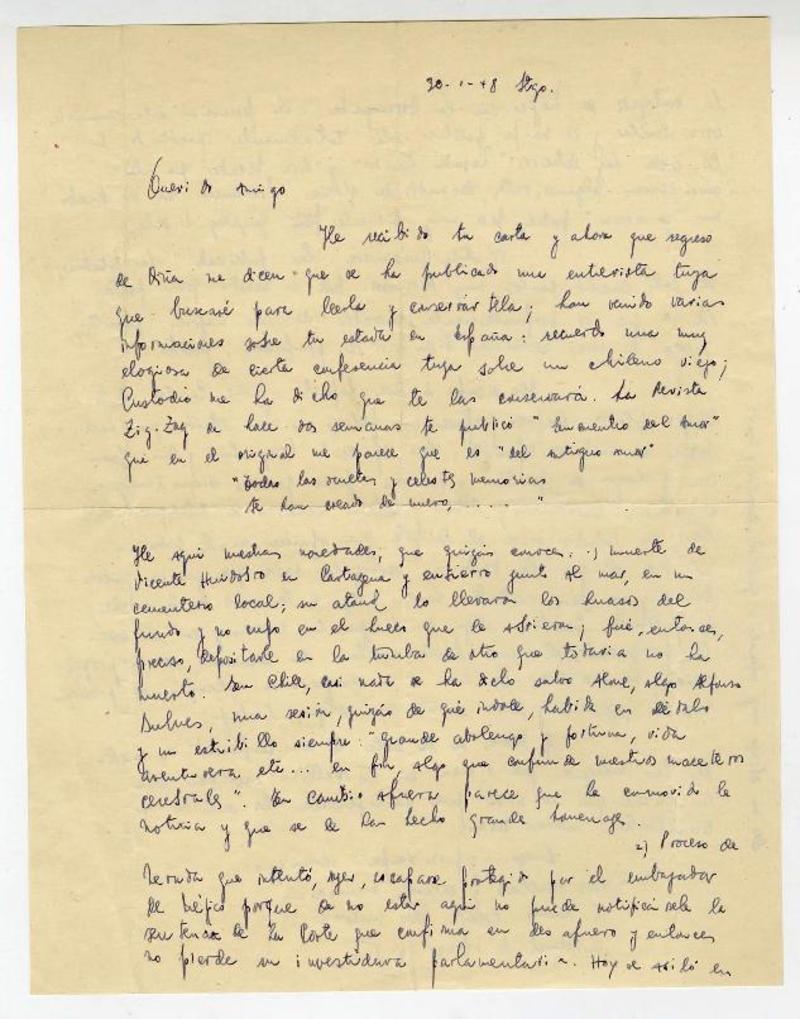 30-1-48 Stgo.
Querido amigo
He recibido tu carta y ahora que regreso
de Viña me dicen que se ha publicado una entrevista tuya
que buscaré para leerla y conservártela; han venido varias
informaciones sobre tu estada en España: recuerdo una muy
elogiosa de cierta conferencia tuya sobre un chileno viejo;
Custodio me ha dicho que te las conservará. La Revista
Zig-Zag de hace dos semanas te publicó "Encuentro del Amor"
que en el original me parece que es "del antiguo amor"
"Todas las sueltas y celestes memorias
te han creado de nuevo, ..... "
He aquí nuestras novedades, que quizás conoces: 1) muerte de
Vicente Huidobro en Cartagena y entierro junto al mar, en un
cementerio local; su ataúd lo llevaron los huasos del
fundo y no cupo en el hueco que le abrieron; fué, entonces,
preciso, depositarle en la tumba de otro que todavía no ha
muerto. En Chile, casi nada se ha dicho salvo Alone, algo Alfonso
Bulnes, una sesión, quizás de qué índole, habida en
y un estribillo siempre: "Grande abolengo y fortuna, vida
aventurera etc... en fin, algo que confunde nuestros maceteros
cerebrales". En cambio afuera parece que ha conmovido la
noticia y que se le han hecho grandes homenajes.
2) Proceso de
Neruda que intentó, ayer, escaparse protegido por el embajador
de Méjico porque de no estar aquí no puede notificársele la
sentencia de la Corte que confirma su desafuero y entonces
no pierde su investidura parlamentaria. Hoy se asiló en